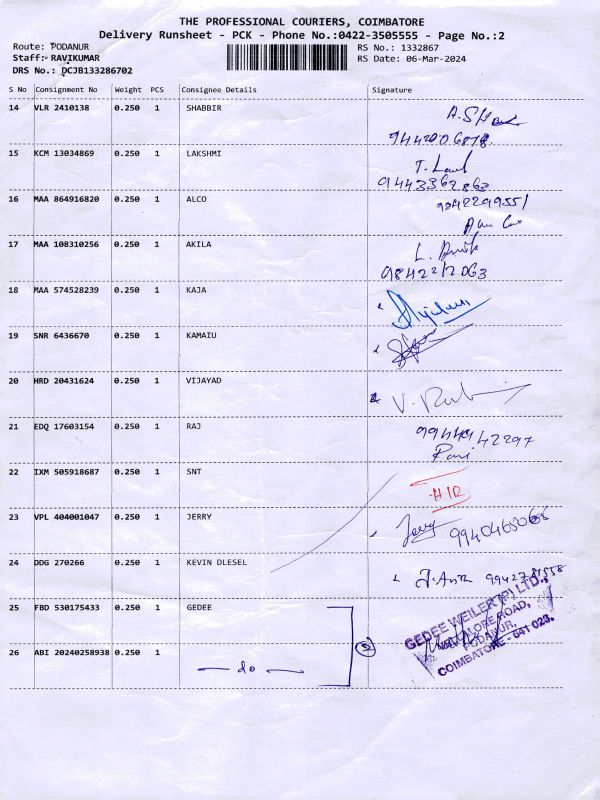 THE PROFESSIONAL COURIERS, COIMBATORE
Delivery Runsheet - PCK - Phone No.:0422-3505555 - Page No.:2
Route: PODANUR
RS No.: 1332867
Staff: RAVIKUMAR
RS Date: 06-Mar-2024
DRS No.: DCJB133286702
S No Consignment No Weight PCS Consignee Details Signature
14 VLR 2410138 0.250 1 SHABBIR
9442206878
15 KCM 13034869 0.250 1 LAKSHMI
9443362863
16 MAA 864916820 0.250 1 ALCO
9942299551
17 MAA 108310256 0.250 1 AKILA
9842212063
18 MAA 574528239 0.250 1 KAJA
19 SNR 6436670 0.250 1 KAMAIU
20 HRD 20431624 0.250 1 VIJAYAD
21 EDQ 17603154 0.250 1 RAJ
22 IXM 505918687 0.250 1 SNT
23 VPL 404001047 0.250 1 JERRY Jerry
24 DDG 270266 0.250 1 KEVIN DLESEL
25 FBD 530175433 0.250 1 GEDEE
26 ABI 20240258938 0.250 1
do
GEDEE WEILER (P) LTD.,
PODANUR,
COIMBATORE - 641 023.